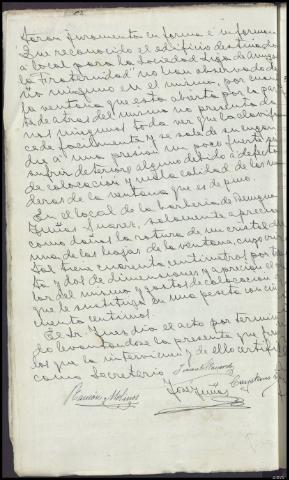 taron juramento en forma e informan
Que reconocido el edificio destinado
a local para la Sociedad Liga de Amigos
la Fraternidad no han observado de
rio ninguno en el mismo, por cuan
la ventana que esta abierta por la par
te de atras del mismo no presenta da
nos ningunos toda vez que la
cede facilmente y se sale de su
a una presion un poco fuerte sin
sufrir deterioro alguno debido a defecto
de colocacion y mala calidad de las ma
deras de la ventana que es de pino.
En el local de la barberia de
Nuñez Suarez, solamente aprecian
como daños la rotura de un cristal de
una de las hojas de la ventana, cuyo cris
tal tiene cuarenta centimetros por
ta y dos de dimensiones y aprecian el va
lor del mismo y gastos de colocacion
que le sustituya en una peseta con cin
cuenta centimos.
El Sr. Juez dio el acto por termina
do levantandose la presente que firman
los que la intervienen y de ello certifico
como Secretario
Ramón Molinos José Nuñez Cayetano